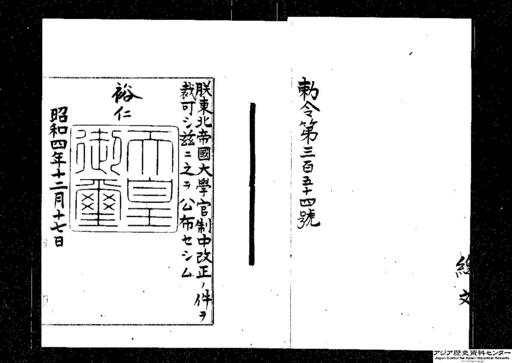 勅令第三百五十四號
総文
朕東北帝國大學官制中改正ノ件ヲ
裁可シ玆ニ之ヲ公布セシム
裕仁
天皇御璽
昭和四年十二月十七日
アジア歴史資料センター
Japan Center for Asian Historical Records